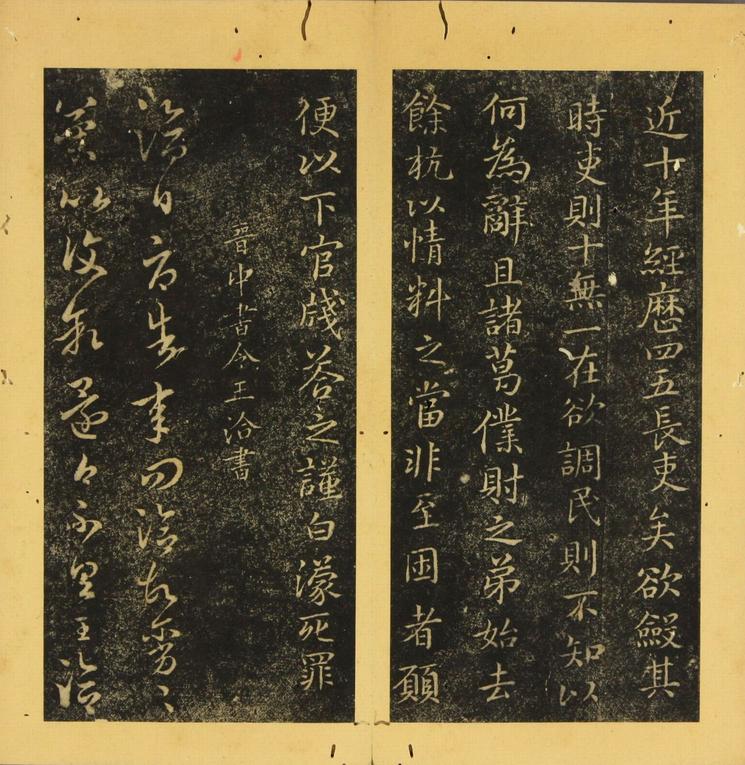 近十年經歷四五長吏矣欲斂其
時吏則十無一在欲調民則不知以
何為辭且諸葛僕射之弟始去
餘杭以情料之當非至困者願
便以下官牋答之謹白濛死罪
晉中書令王洽書
洽白辱告承問洽故爾勞〻
以還白不具王洽